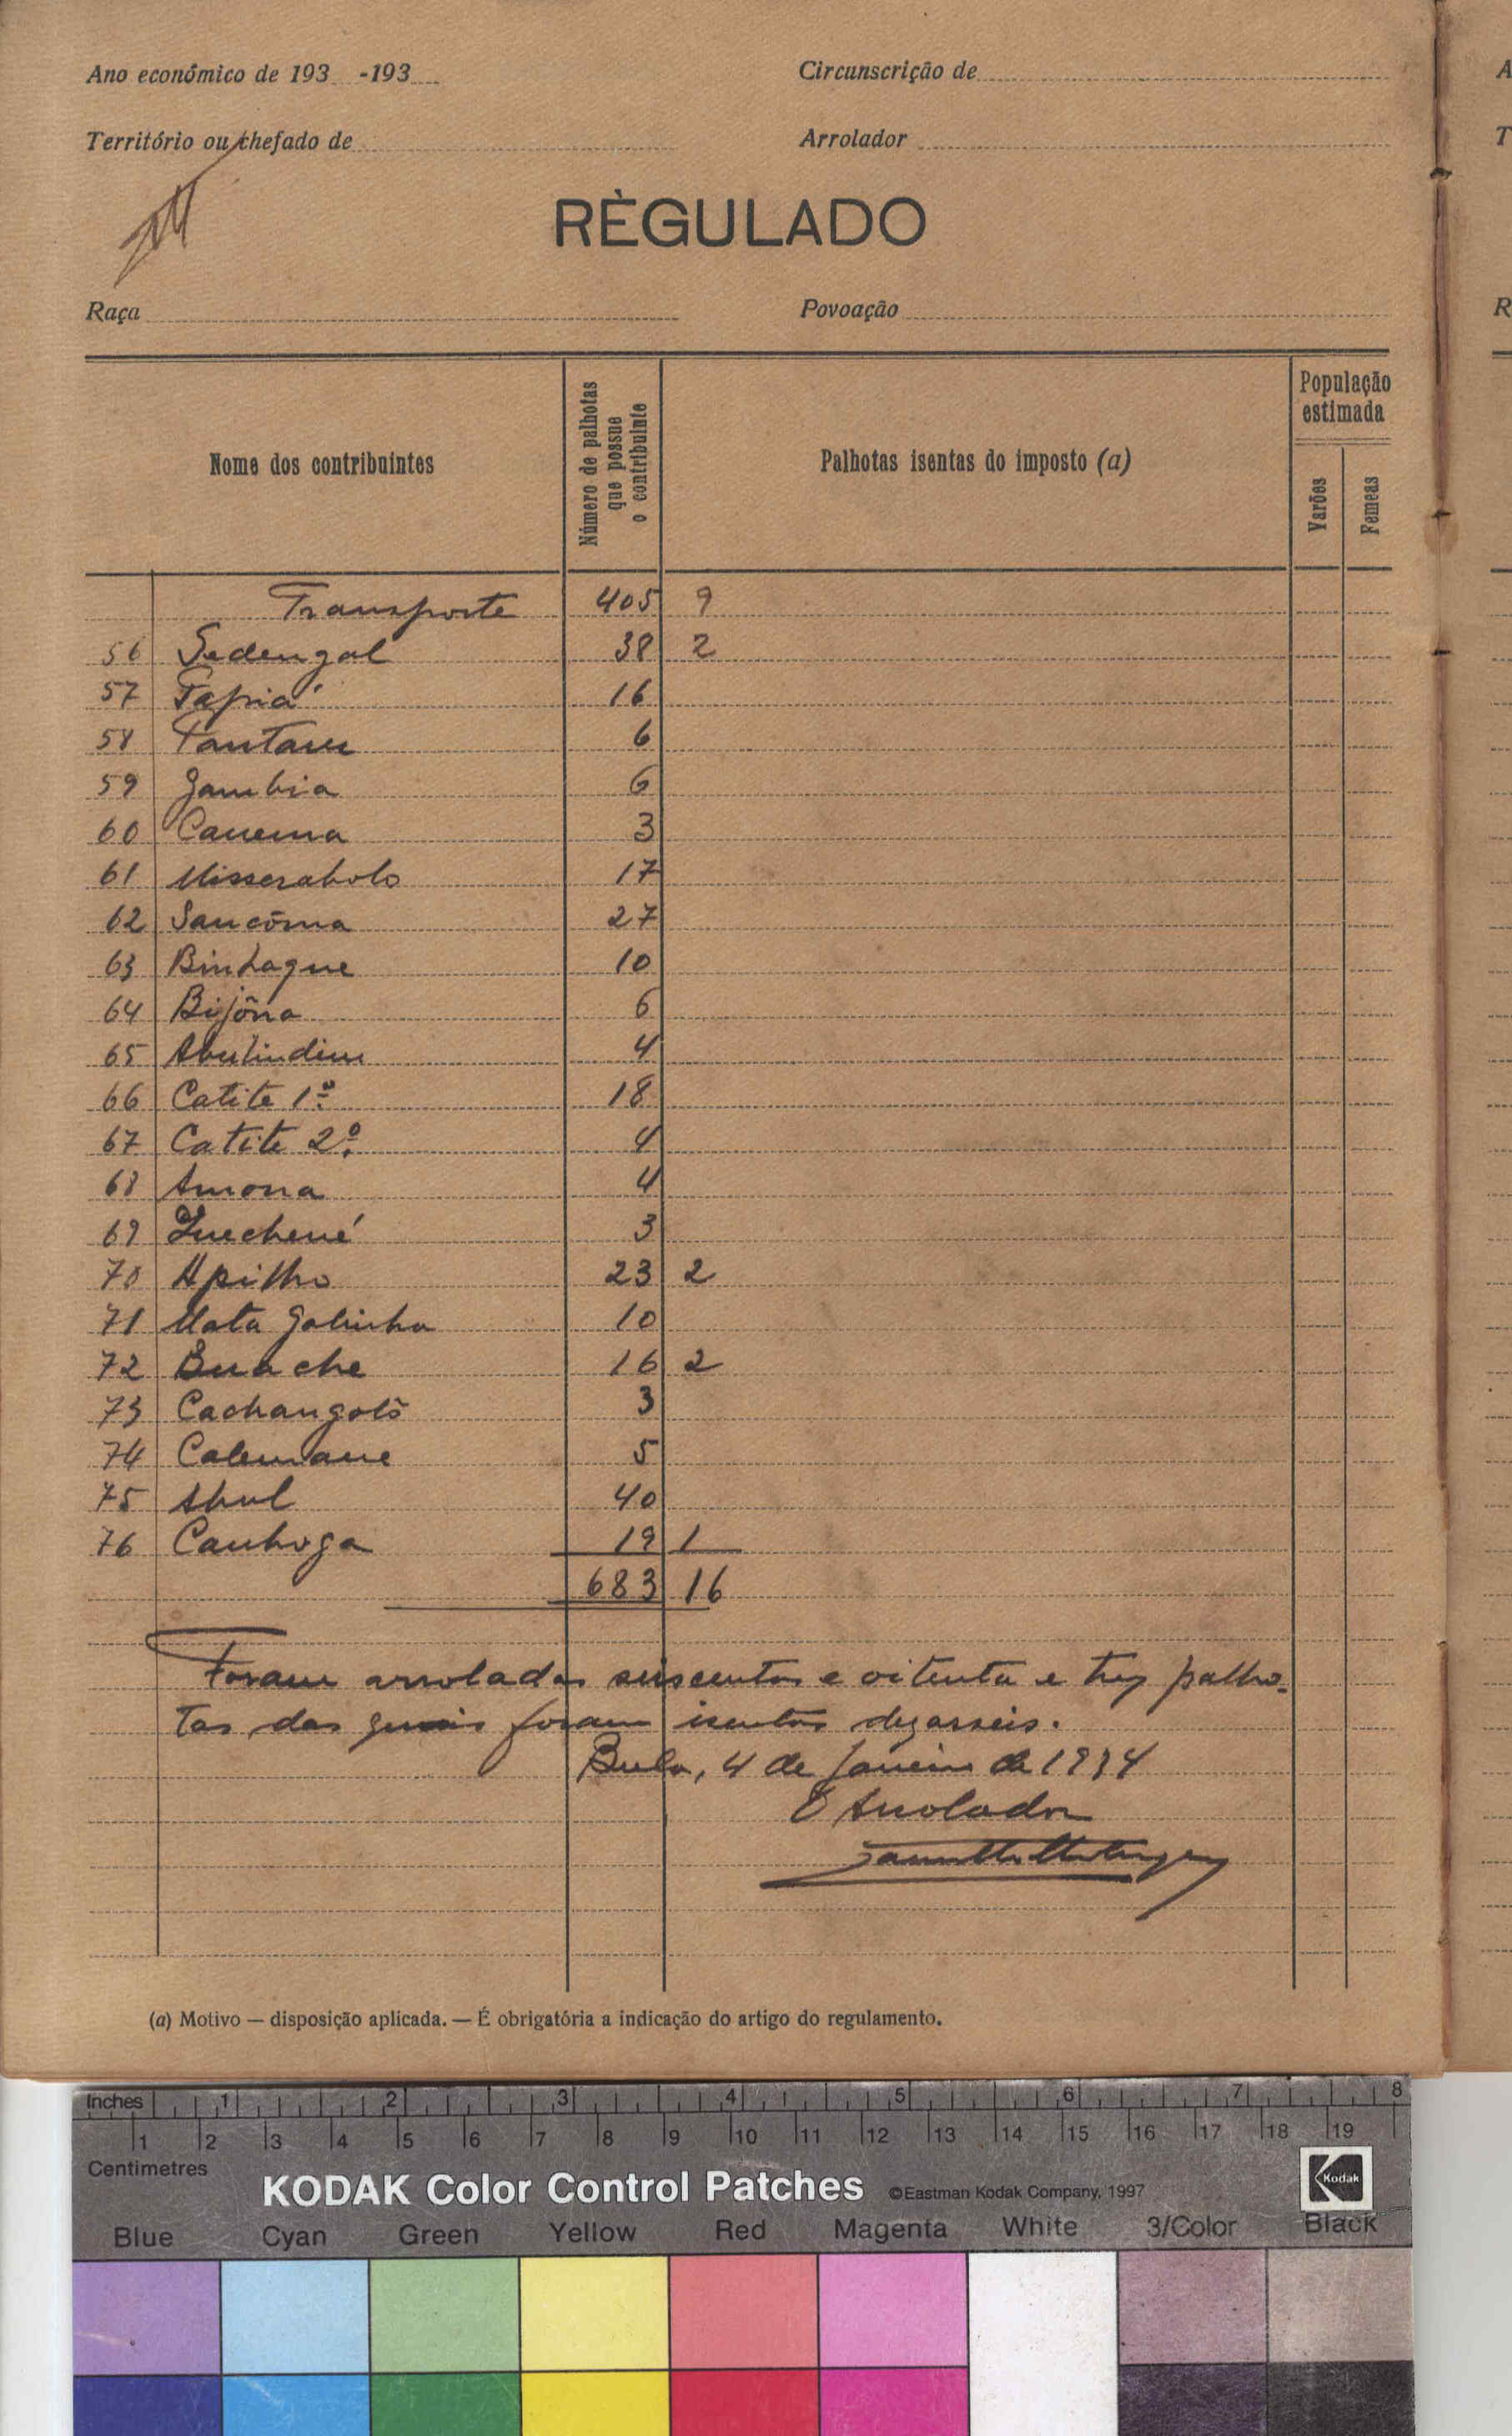 Ano económico de 193 -193
Circunscrição de
Território ou chefado de
Arrolador
RÈGULADO
Raça
Povoação
Nome dos contribuintes
Número de palhotas que possue o contribuinte
Palhotas isentas do imposto (a)
População estimada
Varões
Femeas
Transporte 405 9
56 Sedengal 38 2
57 Tapiá 16
58 Tantam 6
59 Gambia 6
60 Canema 3
61 Misserabolo 17
62 Sancôma 27
63 Binhaque 10
64 Bijôna 6
65 Abulindim 4
66 Catite 1º 18
67 Catite 2º 4
68 Amona 4
69 3
70 Apilho 23 2
71 Mata Galinha 10
72 Buache 16 2
73 Cachangolô 3
74 Calemane 5
75 Abul 40
76 Canhoga 19 1
683 16
Foram arroladas seiscentos e oitenta e trez palho-
tas das quais foram isentas dezasseis.
Bula, 4 de Janeiro de 1934
O Arrolador
(a) Motivo — disposição aplicada. — É obrigatória a indicação do artigo do regulamento.
Inches 1 2 3 4 5 6 7 8
1 2 3 4 5 6 7 8 9 10 11 12 13 14 15 16 17 18 19
Centimetres
KODAK Color Control Patches ©Eastman Kodak Company, 1997 Kodak
Blue Cyan Green Yellow Red Magenta White 3/Color Black